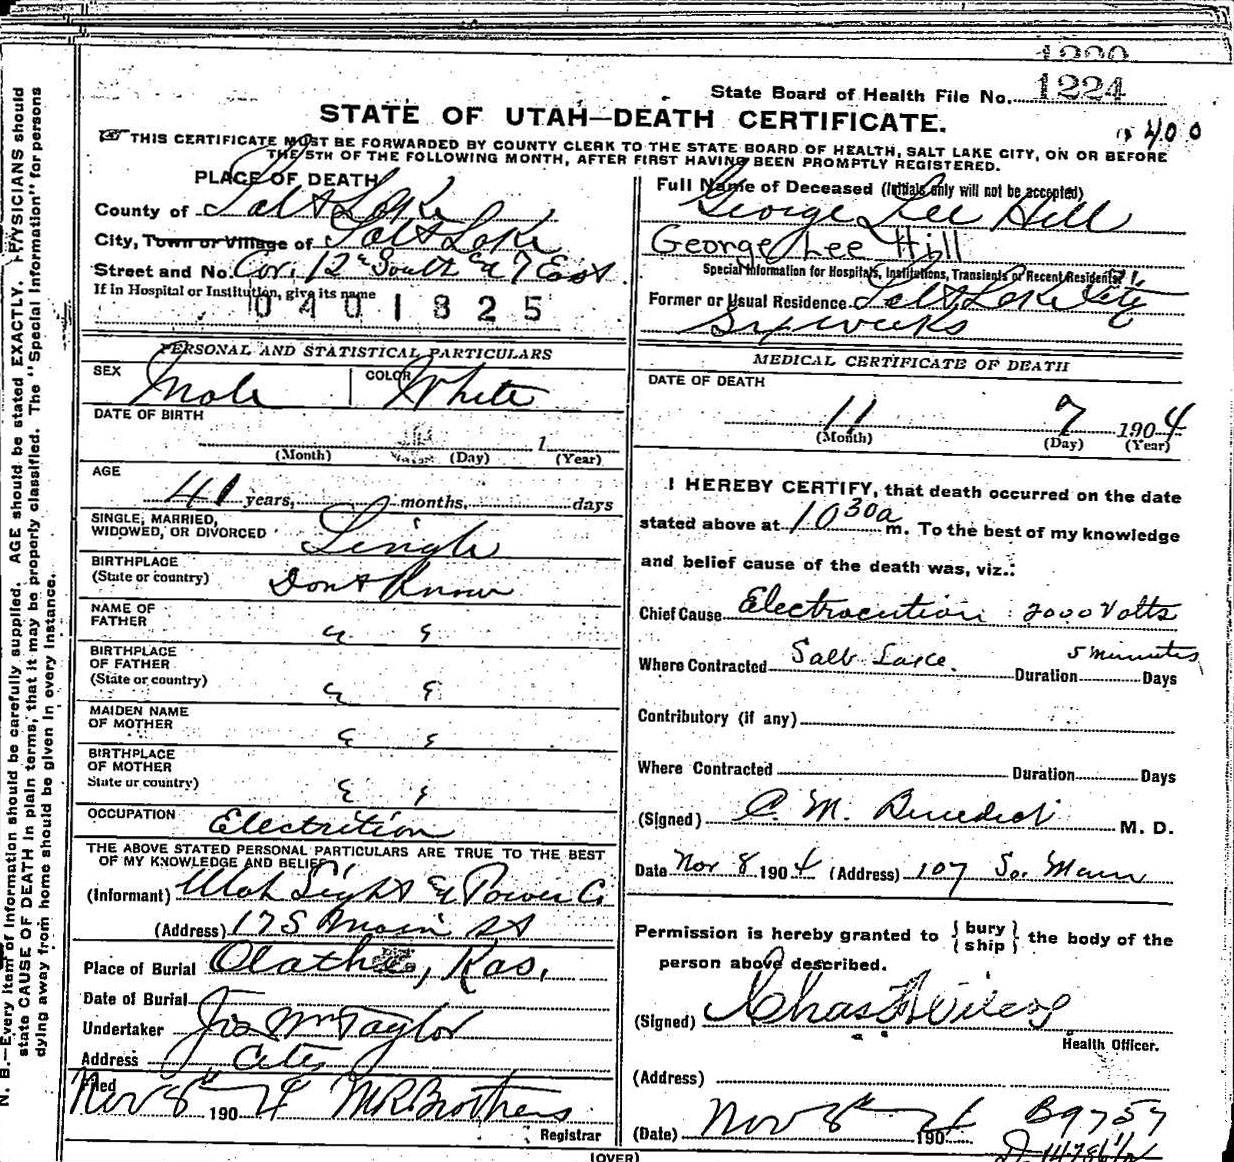 1220
State Board of Health File No. 1224
STATE OF UTAH—DEATH CERTIFICATE.
400
THIS CERTIFICATE MUST BE FORWARDED BY COUNTY CLERK TO THE STATE BOARD OF HEALTH, SALT LAKE CITY, ON OR BEFORE
THE 5TH OF THE FOLLOWING MONTH, AFTER FIRST HAVING BEEN PROMPTLY REGISTERED.
N. B.—Every item of information should be carefully supplied. AGE should be stated EXACTLY. PHYSICIANS should
state CAUSE OF DEATH in plain terms, that it may be properly classified. The "Special Information" for persons
dying away from home should be given in every instance.
PLACE OF DEATH
County of Salt Lake
City, Town or Village of Salt Lake
Street and No. Cor. 12" South & 7 East
If in Hospital or Institution, give its name
0401825
PERSONAL AND STATISTICAL PARTICULARS
SEX Male COLOR White
DATE OF BIRTH
1
(Month) (Day) (Year)
AGE
41 years, months, days
SINGLE, MARRIED,
WIDOWED, OR DIVORCED Single
BIRTHPLACE
(State or country) Dont Know
NAME OF
FATHER " "
BIRTHPLACE
OF FATHER
(State or country) " "
MAIDEN NAME
OF MOTHER " "
BIRTHPLACE
OF MOTHER
State or country) " "
OCCUPATION Electrition
THE ABOVE STATED PERSONAL PARTICULARS ARE TRUE TO THE BEST
OF MY KNOWLEDGE AND BELIEF
(Informant) Utah Light & Power Co
(Address) 175 Main St
Place of Burial Olathe, Kas.
Date of Burial
Undertaker Jos Wm Taylor
Address City
Filed
Nov 8th 1904 M R Brothers
Registrar
Full Name of Deceased (Initials only will not be accepted)
George Lee Hill
George Lee Hill
Special Information for Hospitals, Institutions, Transients or Recent Residents:
Former or Usual Residence Salt Lake City
Six weeks
MEDICAL CERTIFICATE OF DEATH
DATE OF DEATH
11 7 1904
(Month) (Day) (Year)
I HEREBY CERTIFY, that death occurred on the date
stated above at 10 30 a m. To the best of my knowledge
and belief cause of the death was, viz.:
Chief Cause Electrocution 2000 Volts
Where Contracted Salt Lake. Duration 5 minutes Days
Contributory (if any)
Where Contracted Duration Days
(Signed) C. M. Benedict M. D.
Date Nov 8 1904 (Address) 107 So. Main
Permission is hereby granted to {bury} {ship} the body of the
person above described.
(Signed) Chas
Health Officer.
(Address)
(Date) Nov 8th 1904
B9757
(OVER)